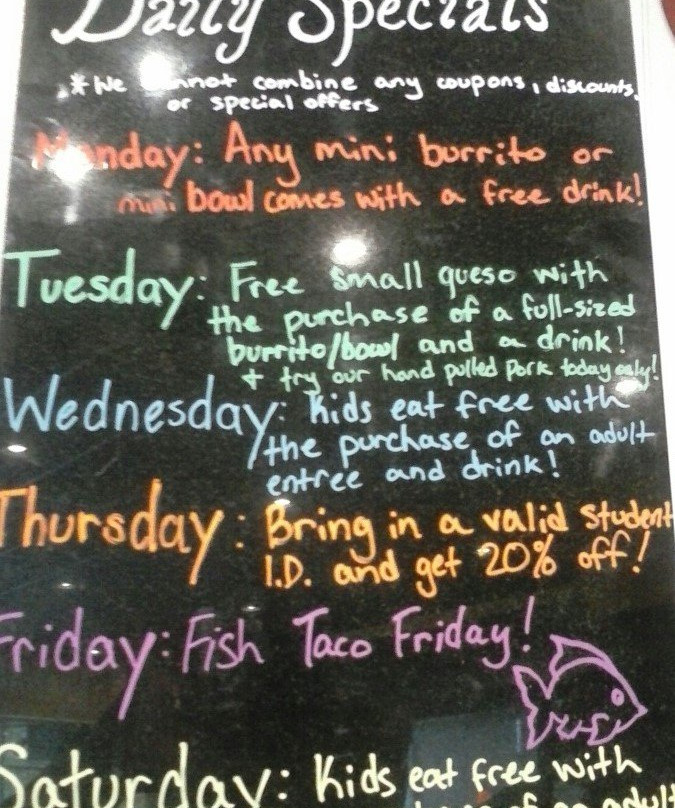 Daily Specials
*We cannot combine any coupons, discounts,
or special offers
Monday: Any mini burrito or
mini bowl comes with a free drink!
Tuesday: Free small queso with
the purchase of a full-sized
burrito/bowl and a drink!
+ try our hand pulled pork today only!
Wednesday: Kids eat free with
the purchase of an adult
entree and drink!
Thursday: Bring in a valid student
I.D. and get 20% off!
Friday: Fish Taco Friday!
Saturday: Kids eat free with
of an adult